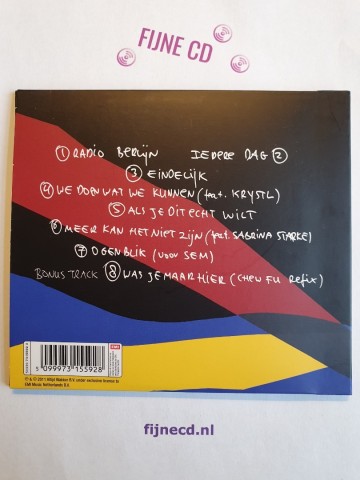 FIJNE CD
① RADIO BERLIJN IEDERE DAG ②
③ EINDELIJK
④ WE DOEN WAT WE KUNNEN (feat. KRYSTL)
⑤ ALS JE DIT ECHT WILT
⑥ MEER KAN HET NIET ZIJN (feat. SABRINA STARKE)
⑦ OGENBLIK (VOOR SEM)
BONUS TRACK ⑧ WAS JE MAAR HIER (CHEW FU Refix)
EMI
5 099973 155928
EMI Music Netherlands B.V.
fijnecd.nl